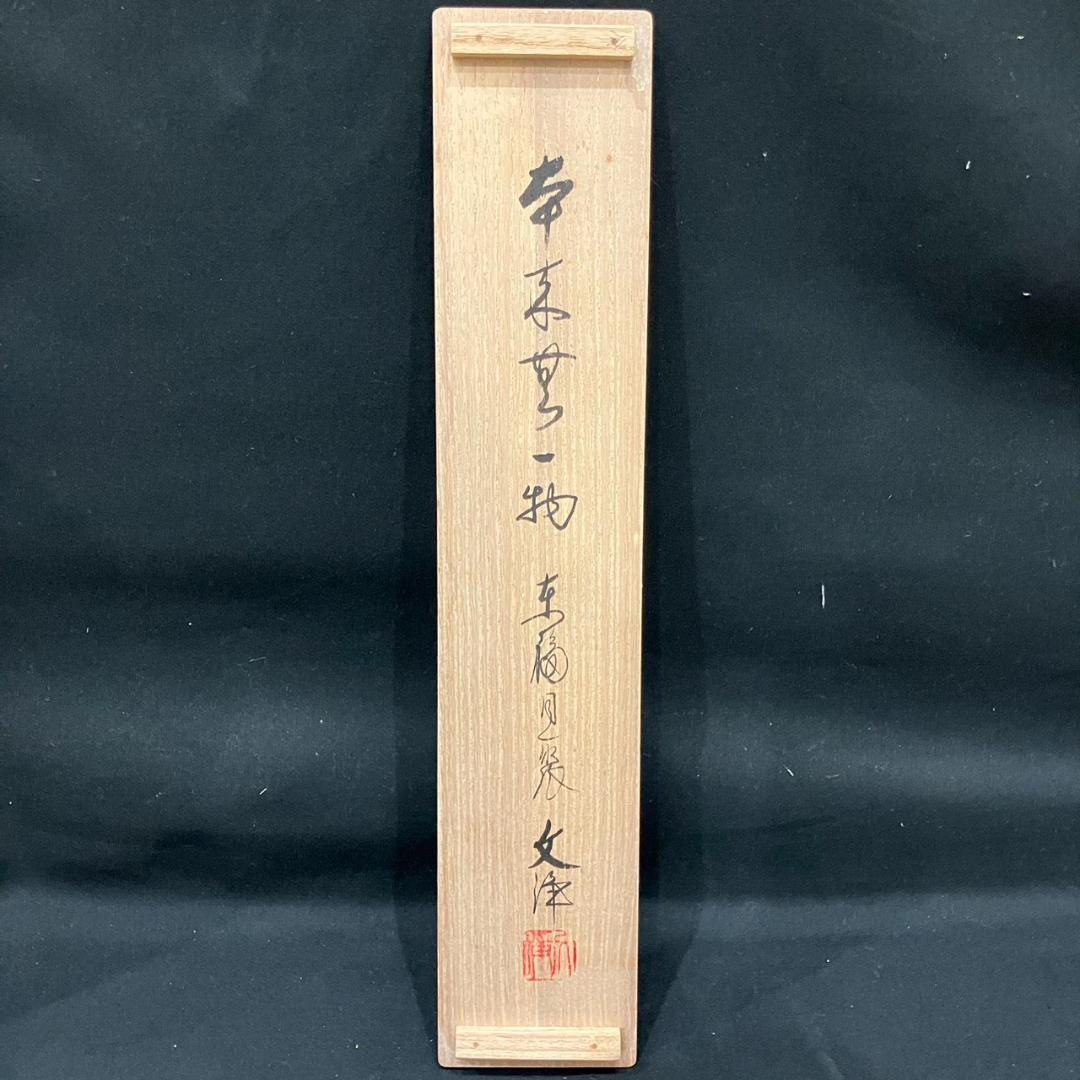 本来無一物 東福 文浄